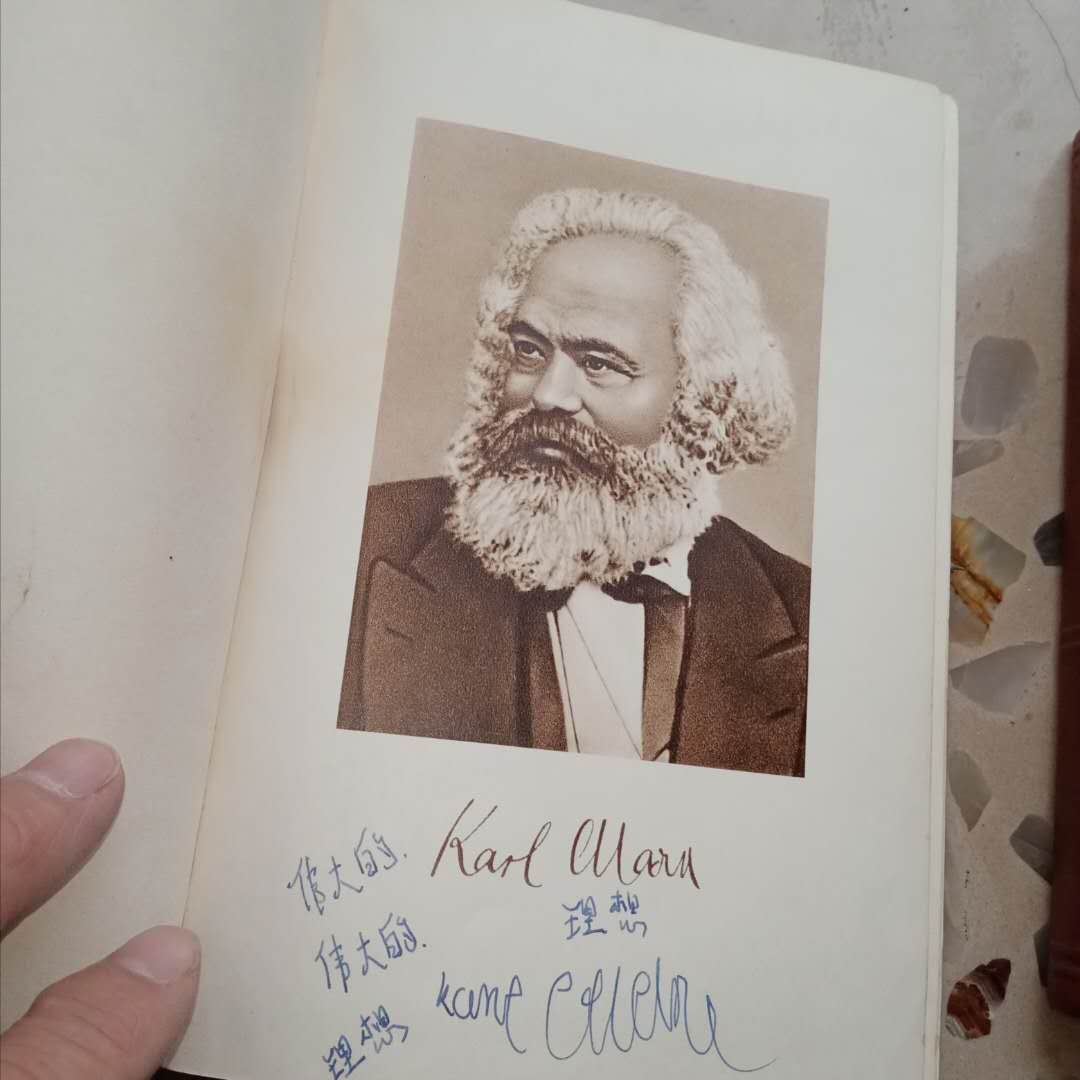 伟大的. Karl Marx
伟大的. 理想
理想